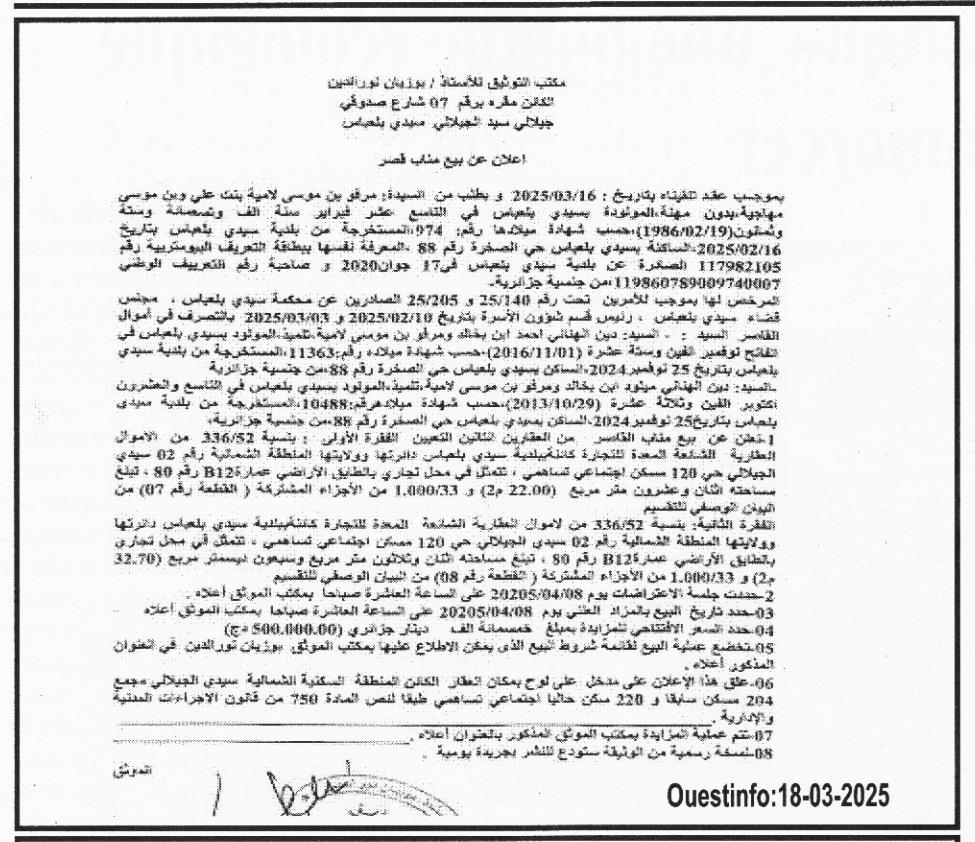 مكتب التوثيق للأستاذ / بوزيان نورالدين
الكائن مقره برقم 07 شارع صدوقي
جيلالي سيد الجيلالي سيدي بلعباس
اعلان عن بيع مناب قصر
بموجب عقد تلقيناه بتاريخ : 2025/03/16 و بطلب من السيدة: مرفو بن موسى لامية بنت علي وبن موسى
مهاجية،بدون مهنة،المولودة بسيدي بلعباس في التاسع عشر فبراير سنة الف وتسعمائة وستة
وثمانون(1986/02/19)،حسب شهادة ميلادها رقم: 974،المستخرجة من بلدية سيدي بلعباس بتاريخ
2025/02/16،الساكنة بسيدي بلعباس حي الصخرة رقم 88 ،المعرفة نفسها ببطاقة التعريف البيومترية رقم
117982105 الصادرة عن بلدية سيدي بلعباس في17 جوان2020 و صاحبة رقم التعرييف الوطني
119860789009740007،من جنسية جزائرية.
المرخص لها بموجب للأمرين تحت رقم 25/140 و 25/205 الصادرين عن محكمة سيدي بلعباس ، مجلس
قضاء سيدي بلعباس ، رئيس قسم شؤون الأسرة بتاريخ 2025/02/10 و 2025/03/03 بالتصرف في أموال
القاصر السيد : - السيد: دين الهناني احمد ابن بخالد ومرفو بن موسى لامية،تلميذ،المولود بسيدي بلعباس في
الفاتح نوفمبر الفين وستة عشرة (2016/11/01)،حسب شهادة ميلاده رقم:11363،المستخرجة من بلدية سيدي
بلعباس بتاريخ 25 نوفمبر2024،الساكن بسيدي بلعباس حي الصخرة رقم 88،من جنسية جزائرية
-السيد: دين الهناني ميلود ابن بخالد ومرفو بن موسى لامية،تلميذ،المولود بسيدي بلعباس في التاسع والعشرون
اكتوبر الفين وثلاثة عشرة (2013/10/29)،حسب شهادة ميلادهرقم:10488،المستخرجة من بلدية سيدي
بلعباس بتاريخ25 نوفمبر2024،الساكن بسيدي بلعباس حي الصخرة رقم 88،من جنسية جزائرية،
1-نعلن عن بيع مناب القاصر من العقارين التاليين التعيين الفقرة الأولى : بنسبة 336/52 من الاموال
العقارية الشائعة المعدة للتجارة كائنةببلدية سيدي بلعباس دائرتها وولايتها المنطقة الشمالية رقم 02 سيدي
الجيلالي حي 120 مسكن اجتماعي تساهمي ، تتمثل في محل تجاري بالطابق الأراضي عمارةB12 رقم 80 ، تبلغ
مساحته اثنان وعشرون متر مربع (22.00 م2) و 1.000/33 من الأجزاء المشتركة ( القطعة رقم 07) من
البيان الوصفي للتقسيم
الفقرة الثانية: بنسبة 336/52 من لاموال العقارية الشائعة المعدة للتجارة كائنةببلدية سيدي بلعباس دائرتها
وولايتها المنطقة الشمالية رقم 02 سيدي الجيلالي حي 120 مسكن اجتماعي تساهمي ، تتمثل في محل تجاري
بالطابق الأراضي عمارةB12 رقم 80 ، تبلغ مساحته اثنان وثلاثون متر مربع وسبعون ديسمتر مربع (32.70
م2) و 1.000/33 من الأجزاء المشتركة ( القطعة رقم 08) من البيان الوصفي للتقسيم
2-حددت جلسة الاعتراضات يوم 20205/04/08 على الساعة العاشرة صباحا بمكتب الموثق أعلاه .
03-حدد تاريخ البيع بالمزاد العلني يوم 20205/04/08 على الساعة العاشرة صباحا بمكتب الموثق أعلاه
04-حدد السعر الافتتاحي للمزايدة بمبلغ خمسمائة الف دينار جزائري (500.000.00 دج)
05-تخضع عملية البيع لقائمة شروط البيع الذى يمكن الاطلاع عليها بمكتب الموثق بوزيان نورالدين في العنوان
المذكور أعلاه .
06-علق هذا الإعلان على مدخل على لوح بمكان العقار الكائن المنطقة السكنية الشمالية سيدي الجيلالي مجمع
204 مسكن سابقا و 220 سكن حاليا اجتماعي تساهمي طبقا لنص المادة 750 من قانون الاجراءات المدنية
والإدارية .
07-تتم عملية المزايدة بمكتب الموثق المذكور بالعنوان أعلاه .
08-نسخة رسمية من الوثيقة ستودع للنشر بجريدة يومية .
الموثق
Ouestinfo:18-03-2025